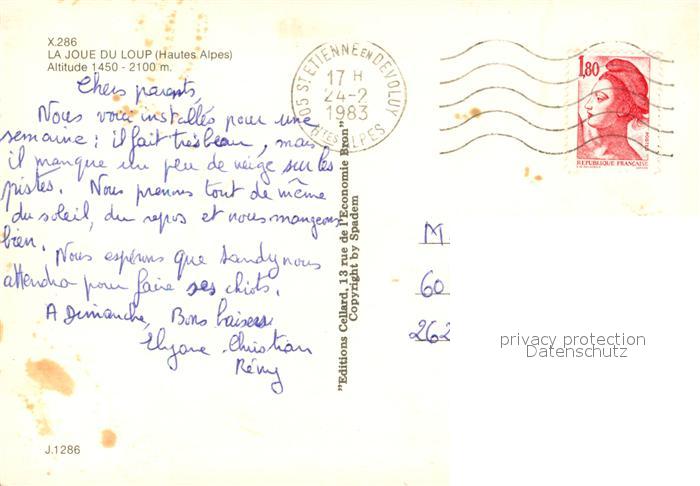 X.286
LA JOUE DU LOUP (Hautes Alpes)
Altitude 1450 - 2100 m.
Chers parents,
Nous voici installés pour une
semaine : il fait très beau, mais
il manque un peu de neige sur les
pistes. Nous prenons tout de même
du soleil, du repos et nous mangeons
bien.
Nous espérons que Sandy nous
attendra pour faire ses chiots.
A Dimanche, Bons baisers
Elyane Christian
Rémy
J.1286
"Editions Cellard, 13 rue de l'Economie Bron"
Copyright by Spadem
05 ST.ETIENNE EN DEVOLUY
17 H
24-2
1983
HTES ALPES
1,80
REPUBLIQUE FRANÇAISE
M
60
262
privacy protection
Datenschutz